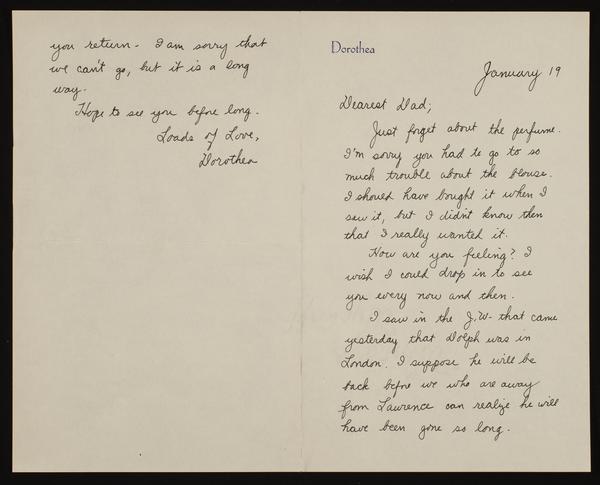 Dorothea
January 19
Dearest Dad;
Just forget about the perfume.
I'm sorry you had to go to so
much trouble about the blouse.
I should have bought it when I
saw it, but I didn't know then
that I really wanted it.
How are you feeling? I
wish I could drop in to see
you every now and then.
I saw in the J.W. that came
yesterday that Dolph was in
London. I suppose he will be
back before we who are away
from Lawrence can realize he will
have been gone so long.
you return - I am sorry that
we can't go, but it is a long
way.
Hope to see you before long.
Loads of Love,
Dorothea